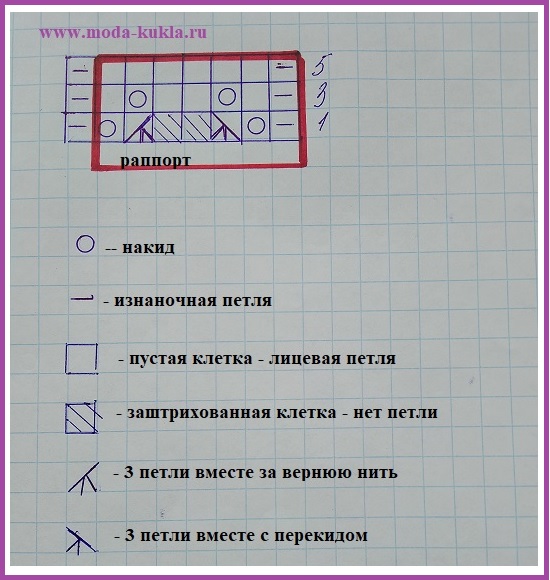 www.moda-kukla.ru
5
3
1
раппорт
-- накид
- изнаночная петля
- пустая клетка - лицевая петля
- заштрихованная клетка - нет петли
- 3 петли вместе за вернюю нить
- 3 петли вместе с перекидом